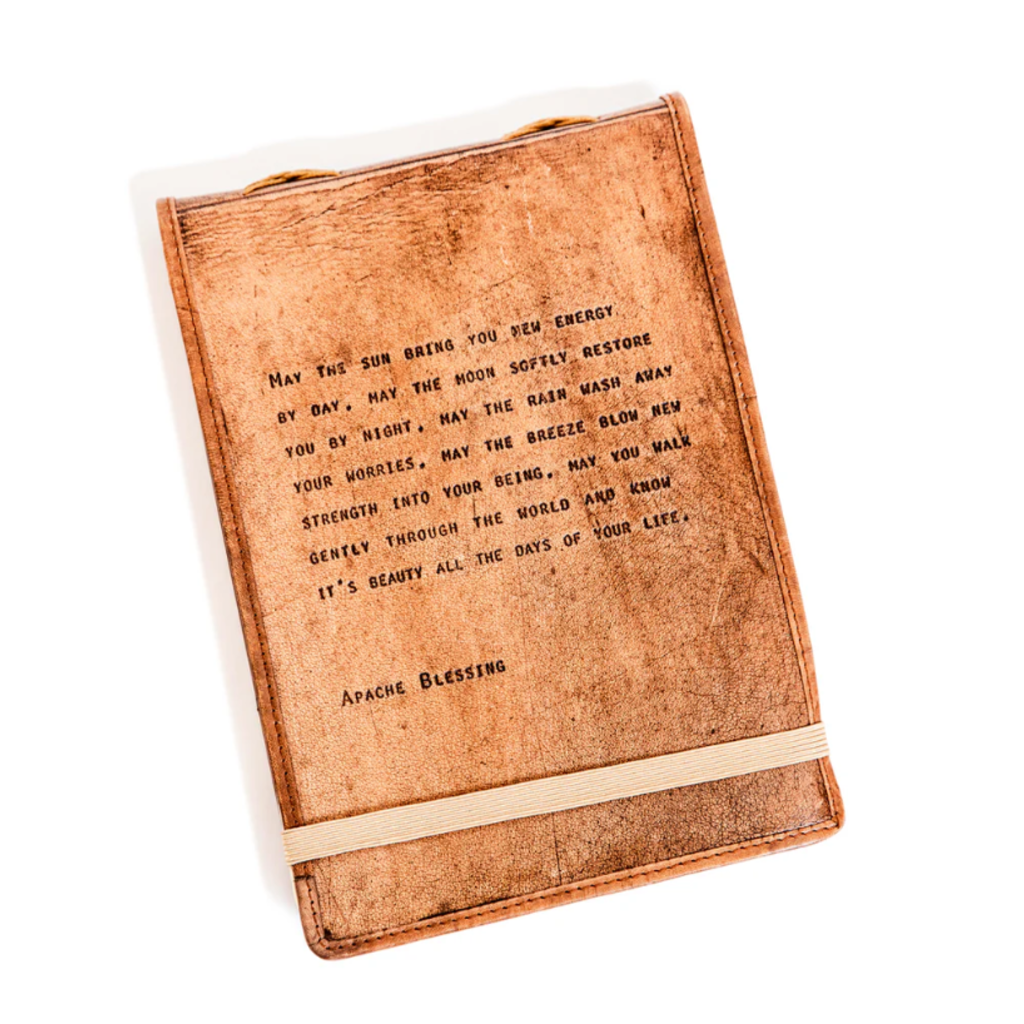 May the sun bring you new energy
by day, may the moon softly restore
you by night, may the rain wash away
your worries, may the breeze blow new
strength into your being, may you walk
gently through the world and know
it's beauty all the days of your life.
Apache Blessing